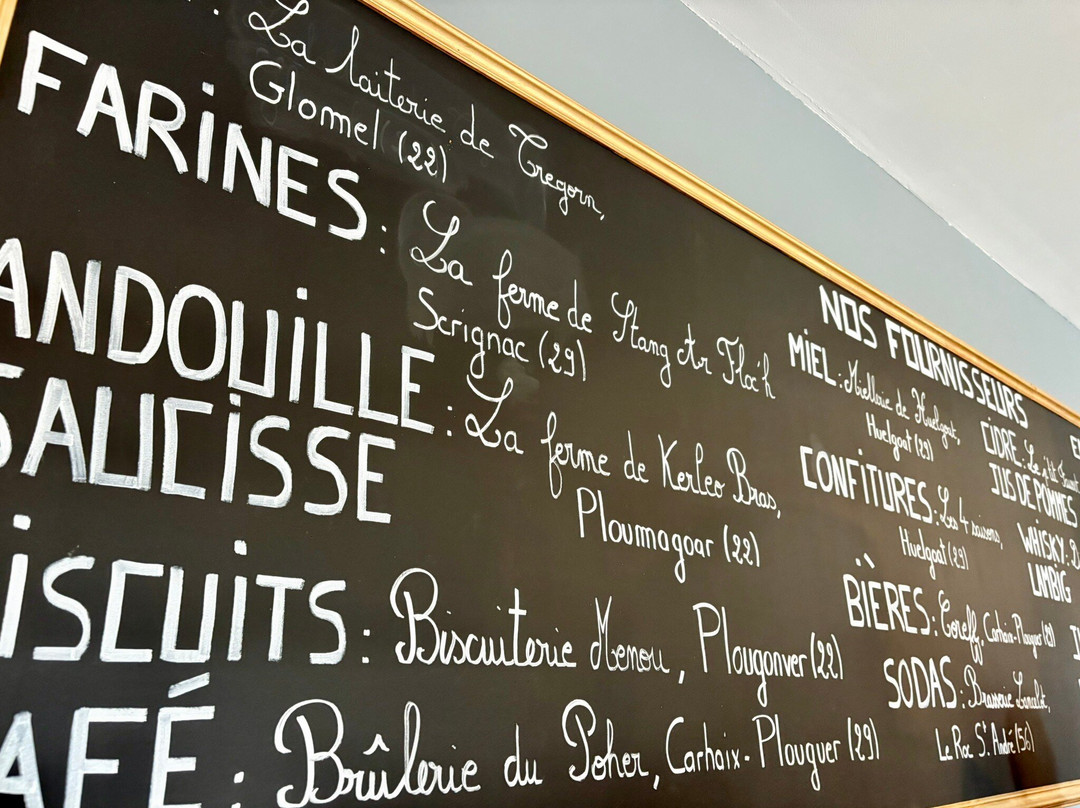 La laiterie de Tregorn,
Glomel (22)
FARINES : La ferme de Stang Ar Floc'h
Scrignac (29)
ANDOUILLE : La ferme de Kerleo Bras,
SAUCISSE
Ploumagoar (22)
ISCUITS : Biscuiterie Menou, Plougonver (22)
AFÉ : Brûlerie du Poher, Carhaix-Plouguer (29)
NOS FOURNISSEURS
MIEL : Miellerie de Huelgoat,
Huelgoat (29)
CONFITURES : Les 4 saisons,
Huelgoat (29)
BIÈRES : Coreff, Carhaix-Plouguer (29)
SODAS : Brasserie Lancelot,
Le Roc St André (56)
CIDRE : Le p'tit
JUS DE POMMES
WHISKY : D
LAMBIG